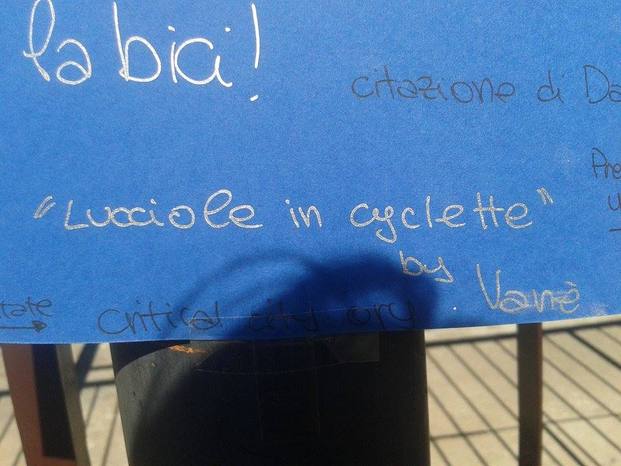 la bici!
citazione di Da
Pre
"Lucciole in cyclette"
by Vanè
critical city